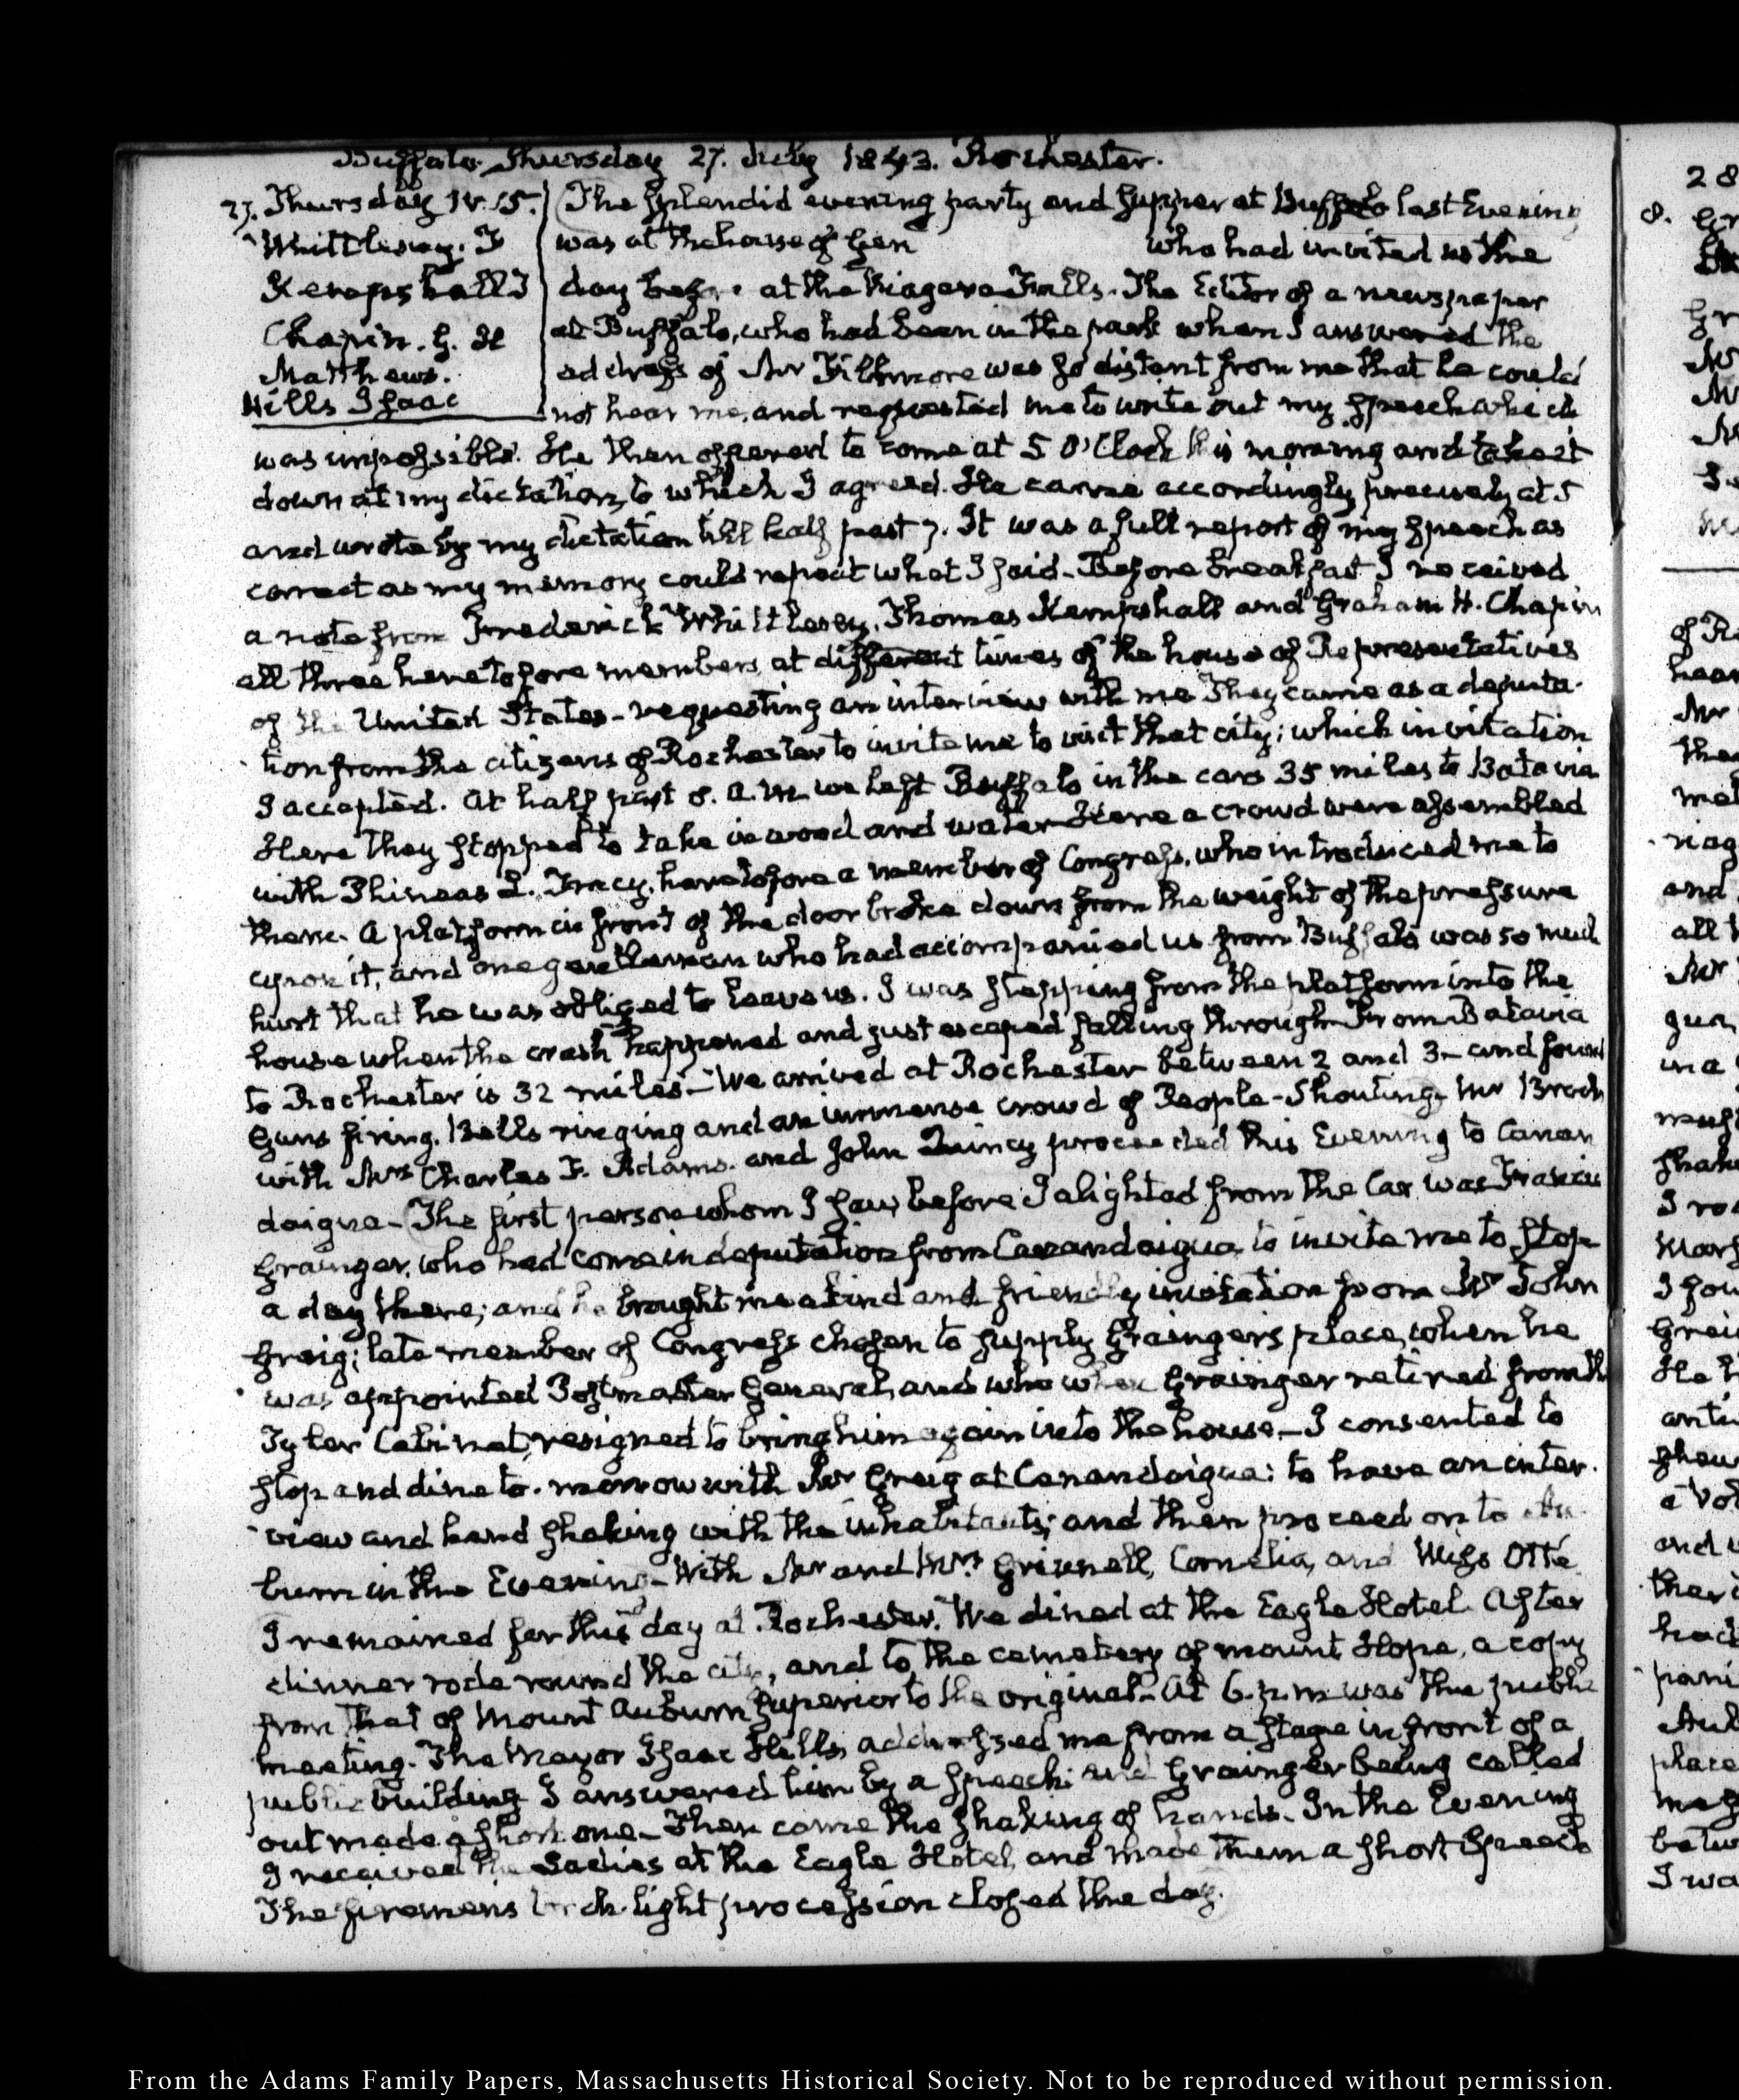 Buffalo Thursday 27. July 1843. Rochester.
27. Thursday IV.15.
Whittlesey. F
Kempshall T
Chapin. G. H
Matthews.
Hills Isaac
The splendid evening party and supper at Buffalo last Evening
was at the house of Gen who had invited us the
day before at the Niagara Falls. The Editor of a newspaper
at Buffalo, who had been in the park when I answered the
address of Mr Fillmore was so distant from me that he could
not hear me, and requested me to write out my speech which
was impossible. He then offered to come at 5 O'Clock this morning and take it
down at my dictation, to which I agreed. He came accordingly precisely at 5
and wrote by my dictation till half past 7. It was a full report of my speech as
correct as my memory could repeat what I said – Before breakfast I received
a note from Frederick Whittlesey, Thomas Kempshall and Graham H. Chapin
all three heretofore members, at different times of the house of Representatives
of the United States – requesting an interview with me They came as a deputa-
tion from the citizens of Rochester to invite me to visit that city; which invitation
I accepted. At half past 8. a.m. we left Buffalo in the cars 35 miles to Batavia
Here they stopped to take in wood and water Here a crowd were assembled
with Phineas L. Tracy, heretofore a member of Congress, who introduced me to
them. A platform in front of the door broke down from the weight of the pressure
upon it, and one gentleman who had accompanied us from Buffalo was so much
hurt that he was obliged to leave us. I was stepping from the platform into the
house when the crash happened and just escaped falling through – From Batavia
to Rochester is 32 miles – We arrived at Rochester between 2 and 3 – and found
Guns firing, Bells ringing and an immense crowd of People – Shouting – Mr Brooks
with Mrs Charles F. Adams. and John Quincy proceeded this Evening to Canan
daigua – The first person whom I saw, before I alighted from the Car was Francis
Grainger, who had come in deputation from Canandaigua, to invite me to stop
a day there; and he brought me a kind and friendly invitation from Mr John
Greig; late member of Congress chosen to supply Graingers place, when he
was appointed Postmaster General, and who when Grainger retired from the
Tyler Cabinet, resigned to bring him again into the house – I consented to
stop and dine to-morrow with Mr Greig at Canandaigua: to have an inter-
view and hand shaking with the inhabitants; and then proceed on to Au-
burn in the Evening – With Mr and Mrs Grinnell, Cornelia, and Miss Otte
I remained for this day at Rochester. We dined at the Eagle Hotel. After
dinner rode round the city, and to the cemetery of mount Hope, a copy
from that of Mount Auburn superior to the original – At 6. p.m was the public
meeting. The Mayor Isaac Hills, addressed me from a stage in front of a
public building I answered him by a speech: and Grainger being called
out made a short one – Then came the shaking of hands. In the Evening
I received the Ladies at the Eagle Hotel, and made them a short speech
The firemens torch-light procession closed the day.
28
8.
From the Adams Family Papers, Massachusetts Historical Society. Not to be reproduced without permission.